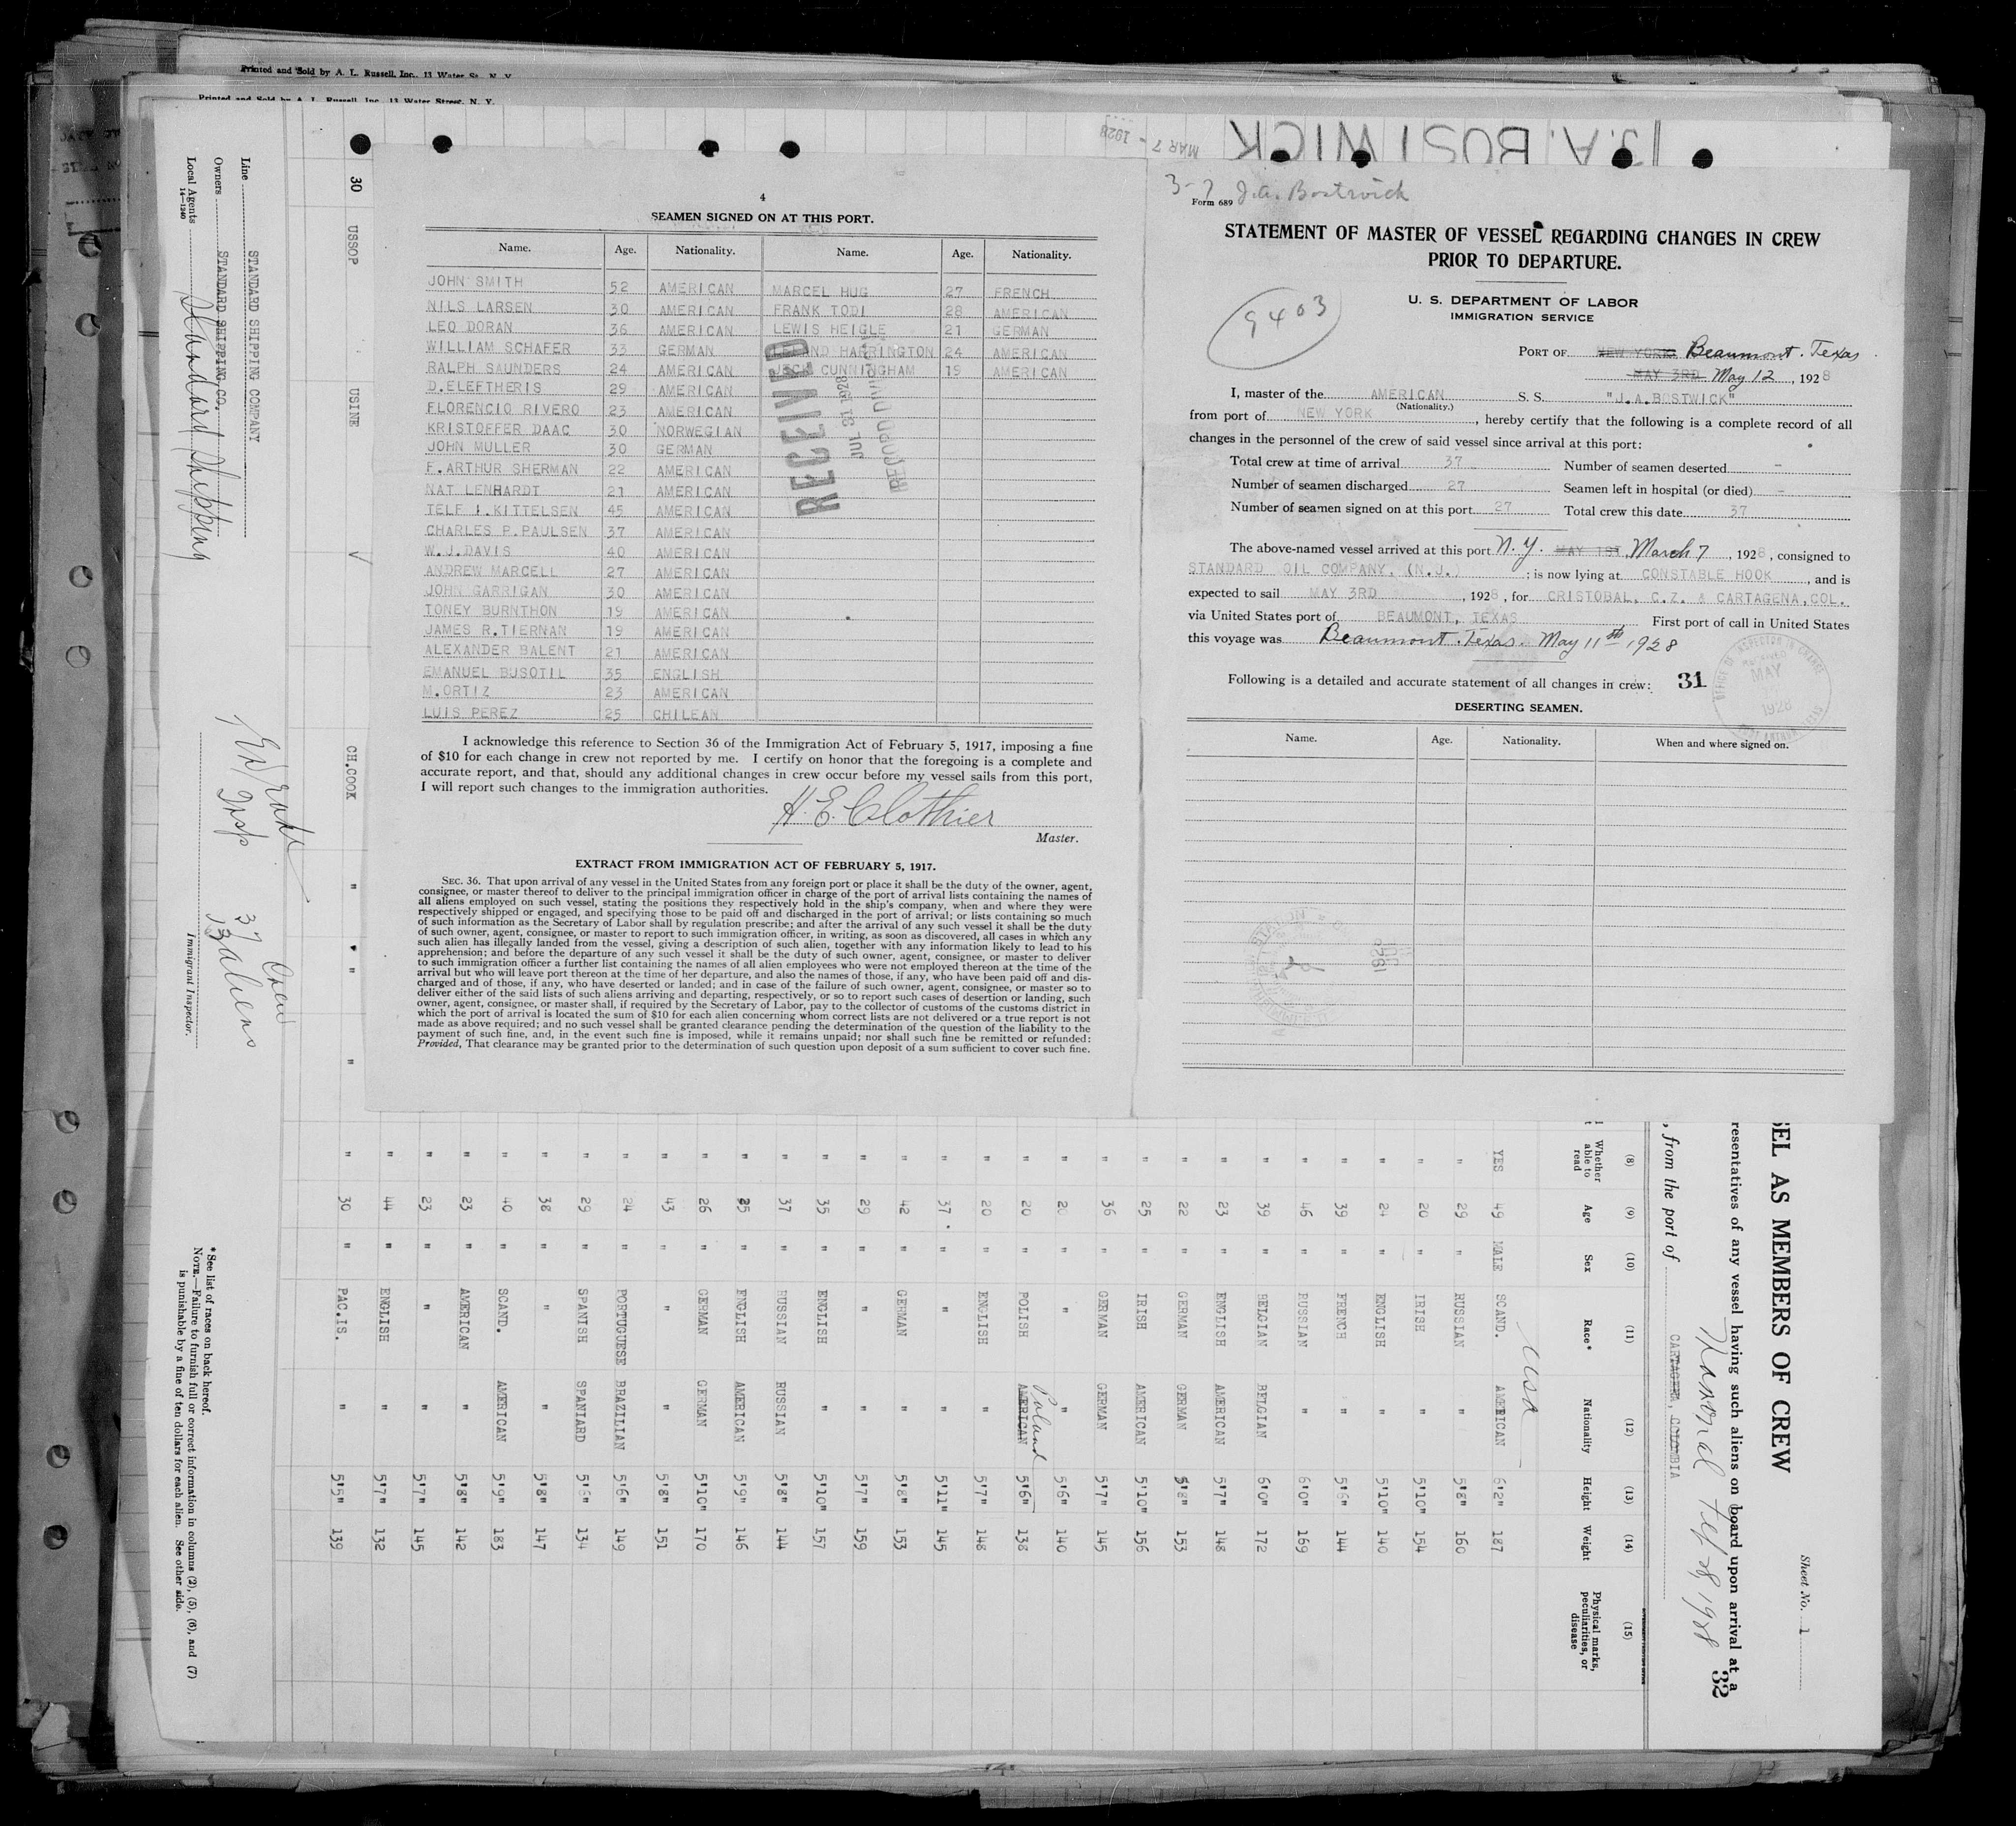 Printed and Sold by A. L. Russell, Inc., 13 Water St., N. Y.
Printed and Sold by A. L. Russell, Inc., 13 Water Street, N. Y.
J.A. BOSTWICK
MAR 7 - 1928
4
SEAMEN SIGNED ON AT THIS PORT.
Name. Age. Nationality. Name. Age. Nationality.
JOHN SMITH 52 AMERICAN MARCEL HUG 27 FRENCH
NILS LARSEN 30 AMERICAN FRANK TODI 28 AMERICAN
LEO DORAN 36 AMERICAN LEWIS HEIGLE 21 GERMAN
WILLIAM SCHAFER 33 GERMAN HARRINGTON 24 AMERICAN
RALPH SAUNDERS 24 AMERICAN CUNNINGHAM 19 AMERICAN
D.ELEFTHERIS 29 AMERICAN
FLORENCIO RIVERO 23 AMERICAN
KRISTOFFER DAAC 30 NORWEGIAN
JOHN MULLER 30 GERMAN
F.ARTHUR SHERMAN 22 AMERICAN
NAT LENHARDT 21 AMERICAN
TELF I.KITTELSEN 45 AMERICAN
CHARLES P.PAULSEN 37 AMERICAN
W.J.DAVIS 40 AMERICAN
ANDREW MARCELL 27 AMERICAN
JOHN GARRIGAN 30 AMERICAN
TONEY BURNTHON 19 AMERICAN
JAMES R.TIERNAN 19 AMERICAN
ALEXANDER BALENT 21 AMERICAN
EMANUEL BUSOTIL 35 ENGLISH
M.ORTIZ 23 AMERICAN
LUIS PEREZ 25 CHILEAN
RECEIVED
JUL 31 1928
RECORD DIVISION
I acknowledge this reference to Section 36 of the Immigration Act of February 5, 1917, imposing a fine
of $10 for each change in crew not reported by me. I certify on honor that the foregoing is a complete and
accurate report, and that, should any additional changes in crew occur before my vessel sails from this port,
I will report such changes to the immigration authorities.
H. E. Clothier
Master.
EXTRACT FROM IMMIGRATION ACT OF FEBRUARY 5, 1917.
SEC. 36. That upon arrival of any vessel in the United States from any foreign port or place it shall be the duty of the owner, agent,
consignee, or master thereof to deliver to the principal immigration officer in charge of the port of arrival lists containing the names of
all aliens employed on such vessel, stating the positions they respectively hold in the ship's company, when and where they were
respectively shipped or engaged, and specifying those to be paid off and discharged in the port of arrival; or lists containing so much
of such information as the Secretary of Labor shall by regulation prescribe; and after the arrival of any such vessel it shall be the duty
of such owner, agent, consignee, or master to report to such immigration officer, in writing, as soon as discovered, all cases in which any
such alien has illegally landed from the vessel, giving a description of such alien, together with any information likely to lead to his
apprehension; and before the departure of any such vessel it shall be the duty of such owner, agent, consignee, or master to deliver
to such immigration officer a further list containing the names of all alien employees who were not employed thereon at the time of the
arrival but who will leave port thereon at the time of her departure, and also the names of those, if any, who have been paid off and dis-
charged and of those, if any, who have deserted or landed; and in case of the failure of such owner, agent, consignee, or master so to
deliver either of the said lists of such aliens arriving and departing, respectively, or so to report such cases of desertion or landing, such
owner, agent, consignee, or master shall, if required by the Secretary of Labor, pay to the collector of customs of the customs district in
which the port of arrival is located the sum of $10 for each alien concerning whom correct lists are not delivered or a true report is not
made as above required; and no such vessel shall be granted clearance pending the determination of the question of the liability to the
payment of such fine, and, in the event such fine is imposed, while it remains unpaid; nor shall such fine be remitted or refunded:
Provided, That clearance may be granted prior to the determination of such question upon deposit of a sum sufficient to cover such fine.
3-7 J.A. Bostwick
Form 689
STATEMENT OF MASTER OF VESSEL REGARDING CHANGES IN CREW
PRIOR TO DEPARTURE.
U. S. DEPARTMENT OF LABOR
IMMIGRATION SERVICE
9403
PORT OF NEW YORK Beaumont. Texas
MAY 3RD May 12, 1928
I, master of the AMERICAN S. S. "J.A.BOSTWICK"
(Nationality.)
from port of NEW YORK, hereby certify that the following is a complete record of all
changes in the personnel of the crew of said vessel since arrival at this port:
Total crew at time of arrival 37 Number of seamen deserted -
Number of seamen discharged 27 Seamen left in hospital (or died) -
Number of seamen signed on at this port 27 Total crew this date 37
The above-named vessel arrived at this port N.Y. MAY 1ST March 7, 1928, consigned to
STANDARD OIL COMPANY, (N.J.) ; is now lying at CONSTABLE HOOK, and is
expected to sail MAY 3RD, 1928, for CRISTOBAL, C.Z. & CARTAGENA,COL.
via United States port of BEAUMONT, TEXAS First port of call in United States
this voyage was Beaumont. Texas. May 11th 1928
Following is a detailed and accurate statement of all changes in crew: 31
OFFICE OF INSPECTOR IN CHARGE
RECEIVED
MAY
1928
PORT ARTHUR, TEXAS
DESERTING SEAMEN.
Name. Age. Nationality. When and where signed on.
Line STANDARD SHIPPING COMPANY
Owners STANDARD SHIPPING CO.
Local Agents Standard Shipping
14-1240
Insp
37 Crew
13 aliens
Immigrant Inspector.
30 USSOP USINE CH.COOK " " "
Sheet No. 1
SEL AS MEMBERS OF CREW
resentatives of any vessel having such aliens on board upon arrival at a
32
, from the port of CARTAGENA, COLOMBIA Mamonal Feb 28, 1928
(8) (9) (10) (11) (12) (13) (14) (15)
Whether able to read Age Sex Race* Nationality Height Weight Physical marks, peculiarities, or disease
USA
YES 49 MALE SCAND. AMERICAN 6'2" 187
" 29 " RUSSIAN " 5'8" 160
" 20 " IRISH " 5'10" 154
" 24 " ENGLISH " 5'10" 140
" 39 " FRENCH " 5'6" 144
" 46 " RUSSIAN " 6'0" 169
" 39 " BELGIAN BELGIAN 6'0" 172
" 23 " ENGLISH AMERICAN 5'7" 148
" 22 " GERMAN GERMAN 5'8" 153
" 25 " IRISH AMERICAN 5'10" 156
" 36 " GERMAN GERMAN 5'7" 145
" 20 " " " 5'6" 140
" 20 " POLISH AMERICAN Poland 5'6" 138
" 20 " ENGLISH " 5'7" 148
" 37 " " " 5'11" 145
" 42 " GERMAN " 5'8" 153
" 29 " " " 5'7" 159
" 35 " ENGLISH " 5'10" 157
" 37 " RUSSIAN RUSSIAN 5'8" 144
" 25 " ENGLISH AMERICAN 5'9" 146
" 26 " GERMAN GERMAN 5'10" 170
" 43 " " " 5'8" 151
" 24 " PORTUGUESE BRAZILIAN 5'6" 149
" 29 " SPANISH SPANIARD 5'6" 134
" 38 " " 5'8" 147
" 40 " SCAND. AMERICAN 5'9" 183
" 23 " AMERICAN " 5'8" 142
" 23 " " " 5'7" 145
" 44 " ENGLISH " 5'7" 132
" 30 " PAC.IS. " 5'5" 139
*See list of races on back hereof.
NOTE.—Failure to furnish full or correct information in columns (2), (5), (6), and (7)
is punishable by a fine of ten dollars for each alien. See other side.